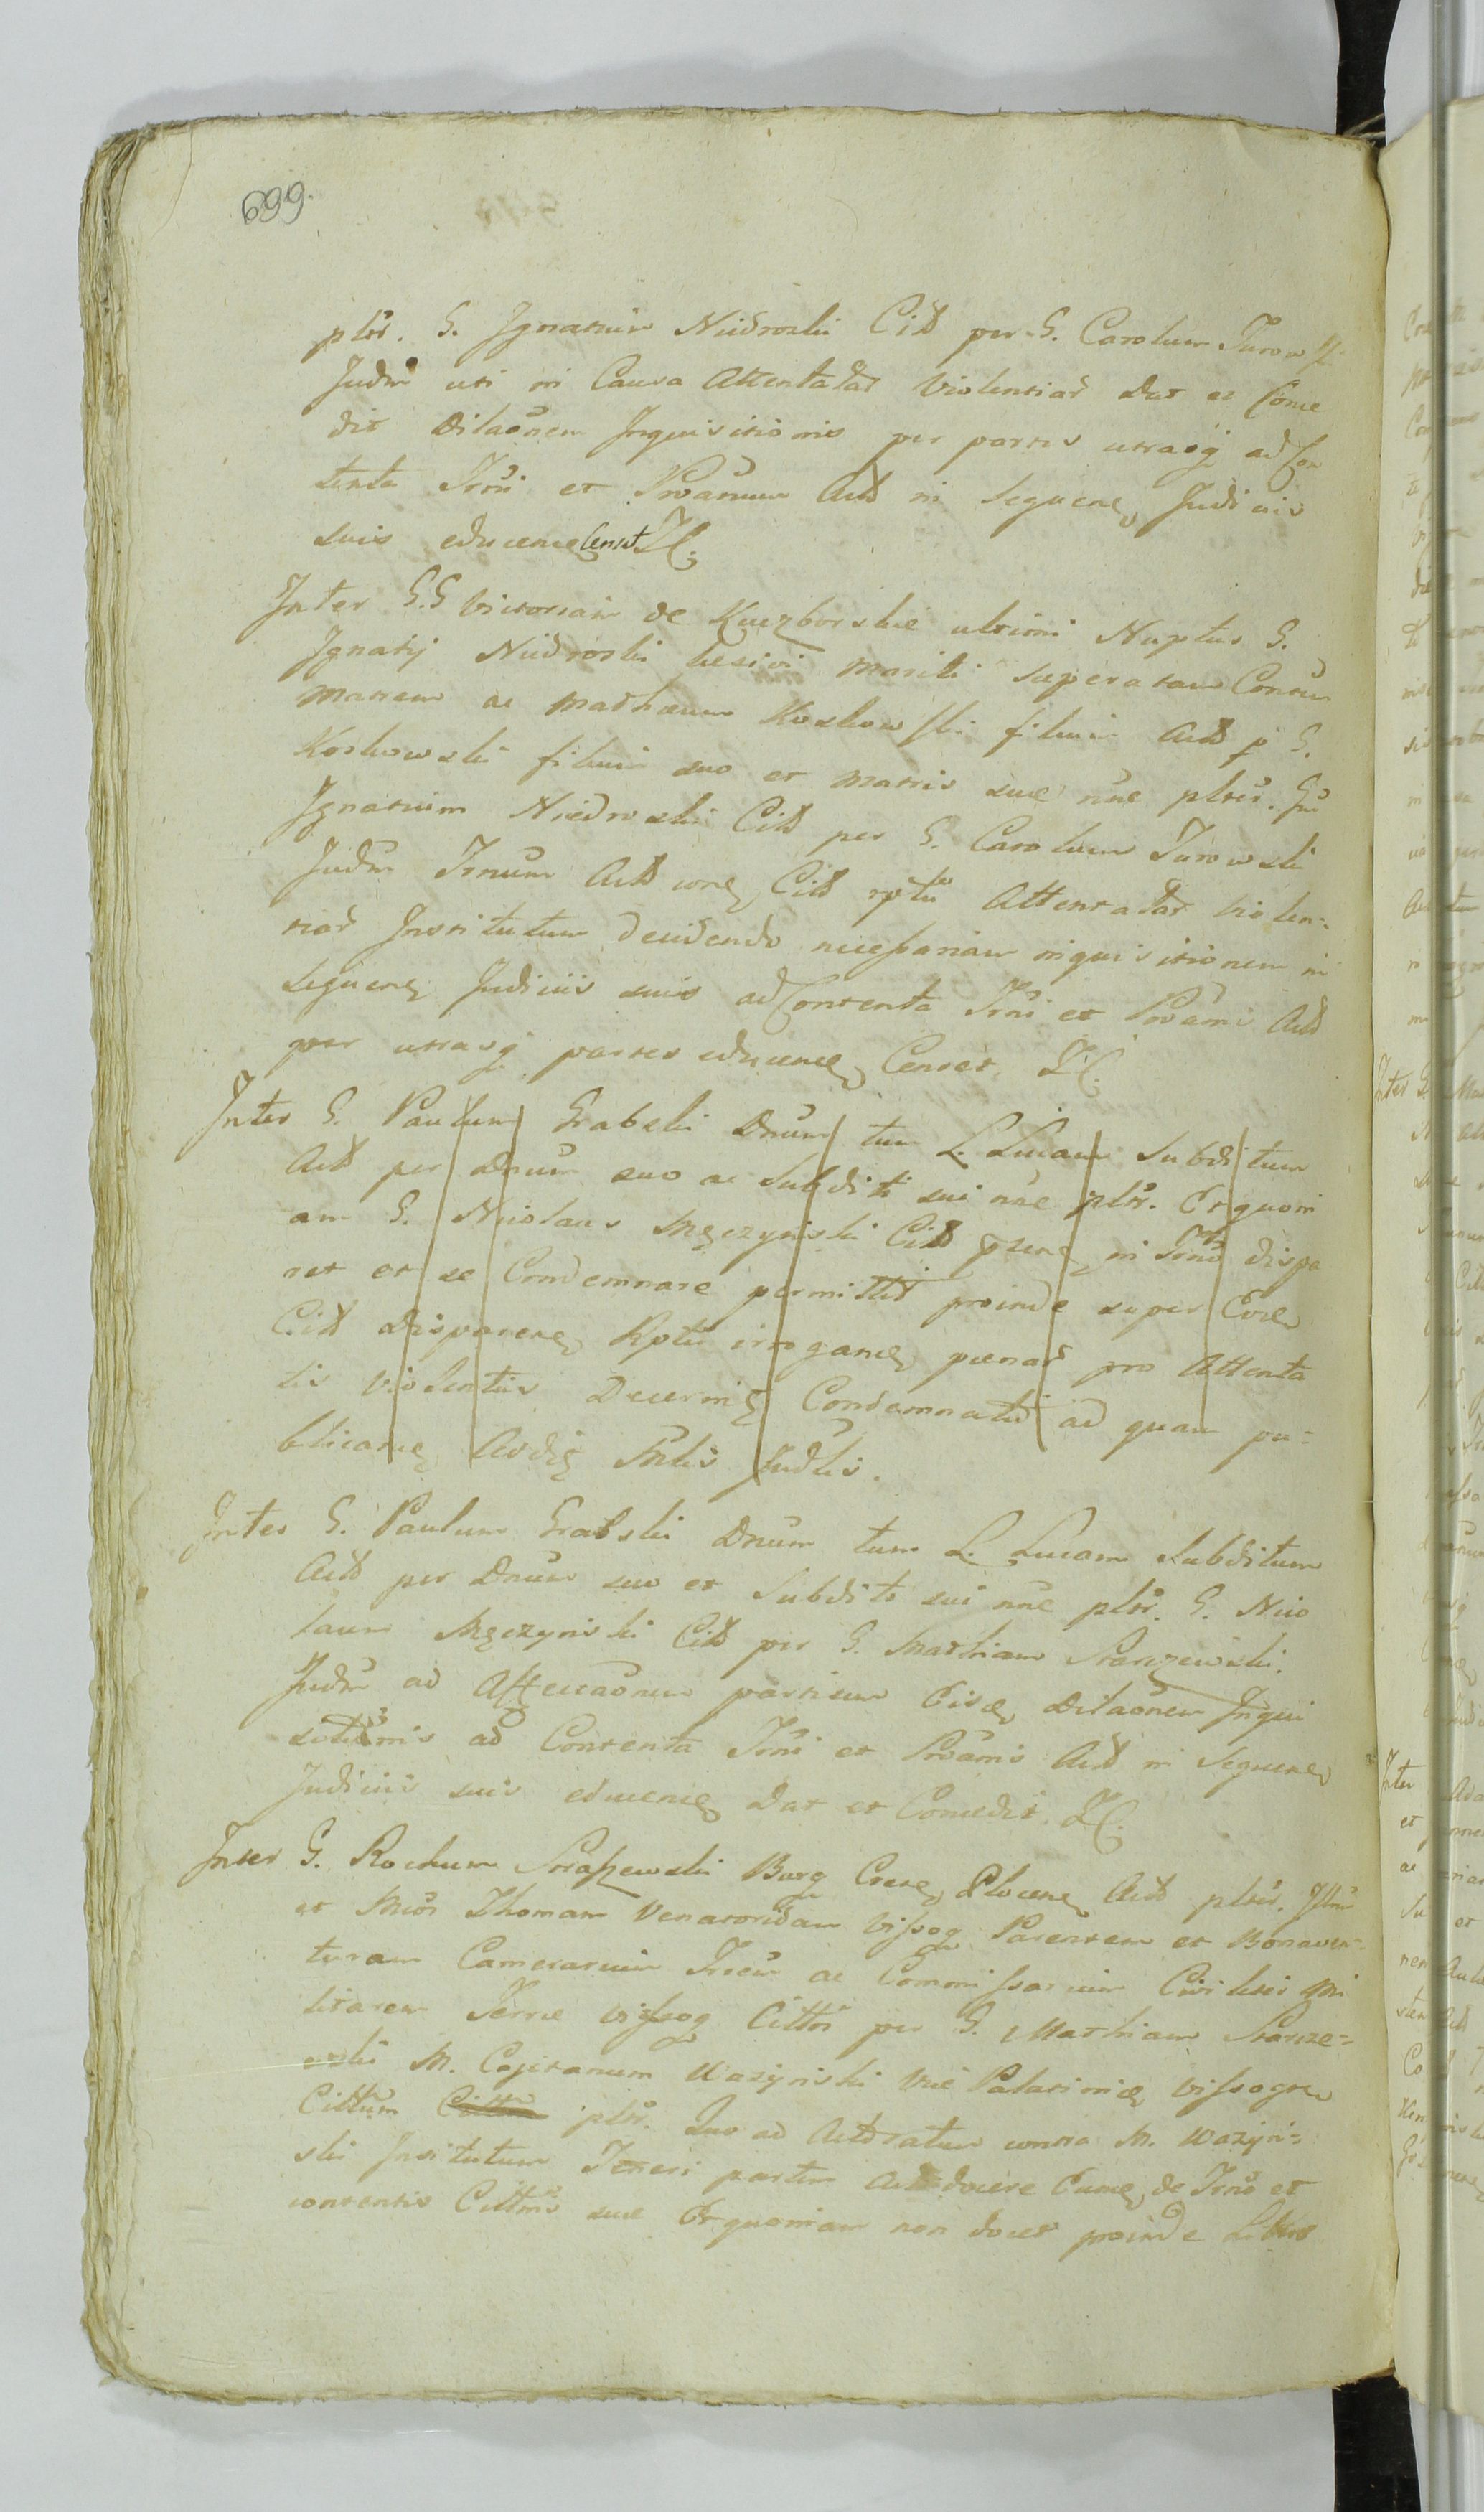 699.
pltr. G. Ignatium Niedroski Citt per G. Carolum Turowski
Judm uti in Causa Attentatar violentiar Dat et Conce
dit Dilaonem Inquisitionis per partes utrasq ad Con
tenta Trni et Proamum Actt in sequenz Judiciis
suis educenz Censet LC.
Inter G.G Victoriam de Kuczborskie ultimi Nuptus G.
Ignatij Niedroski lesivi mariti superatam Consm
matrem ac Mathæum Koskowski filium Actt p G.
Koskowski filium suo et matris suæ nne pltr. Gm
Ignatium Niedroski Citt per G. Carolum Turowski
Judm Trnum Actt conz Citt rptu Attentatar violen:
tiar Institutum decidendo necessariam inquisitionem in
sequenz Judiciis suis ad Contenta Trni et Proami Actt
per utrasq partes educenz Censet. LC.
Inter G. Paulum Grabski Dnum tum L. Lucam subditum
Actt per Dnum suo ac Subditi sui nne pltr. Et quoni
am G. Nicolaus Męczyński Citt pzenz in Trno dispa
ret et se Condemnare permittit proinde super Eodz
Citt Disparenz Rptu irroganz pœnar pro Attenta
tis violentiis Decerniz Condemnatu ad quam pu=
blicanz Ardiz Mtis Judlis.
Inter G. Paulum Grabski Dnum tum L. Lucam Subditum
Actt per Dnum suo et Subditi sui nne pltr. G. Nico
laum Męczyński Citt per G. Mathiam Starczewski.
Judm ad Affectaonem partium Eisz Dilaonem Inqui
sitionis ad Contenta Trni et Proamis Actt in Sequenz
Judiciis suis educenz Dat et Concedit. LC.
Inter G. Rochum Straszewski Burg Crenz Plocenz Actt pltr. Illm
et Mcos Thomam Venatoridam Vissog Parentem et Bonaven=
turam Camerarium Trrem ac Commissarium Civilem Mi
litarem Terræ Vissog Cittos per G. Mathiam Starcze=
wski M. Cajetanum Wazyński Palatiniz Vissogrz
Cittum pltr. Quo ad Actoratum contra M. Wazyń=
ski Institutum Teneri partem Actt docere Eumz de Trno et
contentis Cittnis suæ Et quoniam non docet proinde Libere